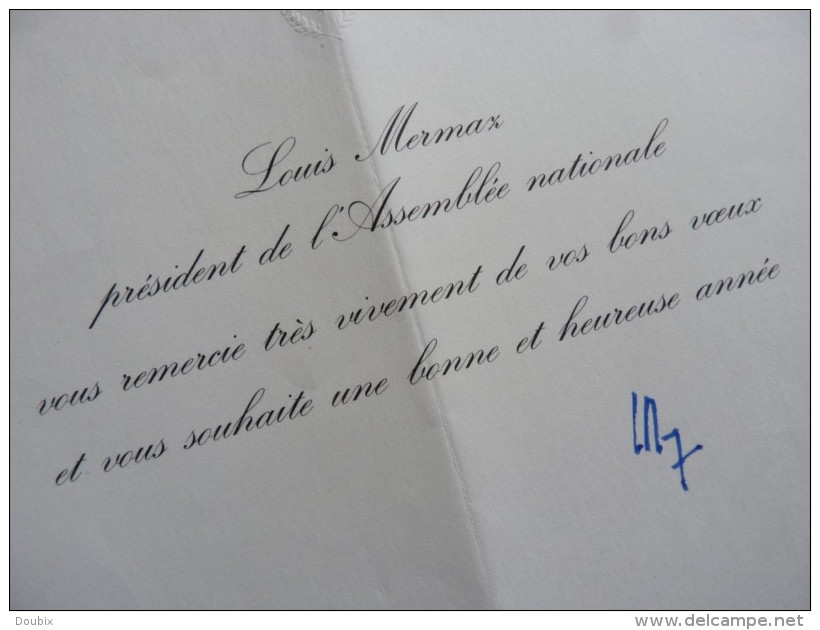 Louis Mermaz
président de l'Assemblée nationale
vous remercie très vivement de vos bons vœux
et vous souhaite une bonne et heureuse année
Doubix
www.delcampe.net